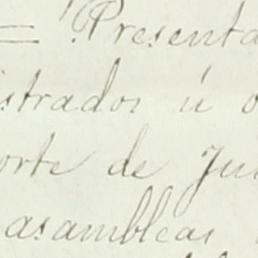 = Presenta
istrados ú o
orte de Ju
asambleas